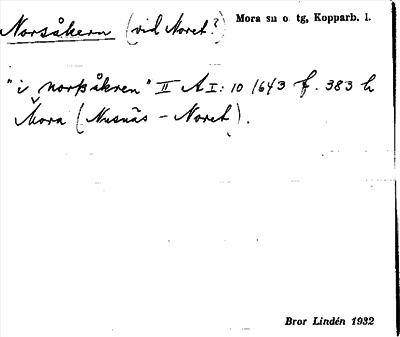 Norsåkern (vid Noret?) Mora sn o. tg, Kopparb. l.
"i norsåkren" II A I: 10 1643 f. 383 h
Mora (Nusnäs – Noret).
Bror Lindén 1932